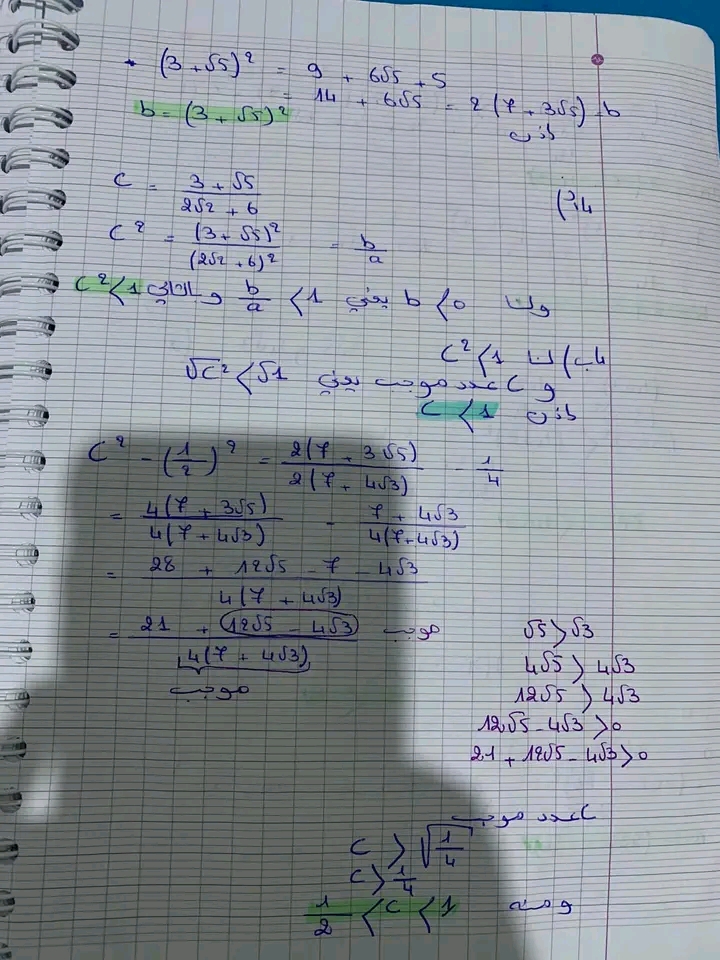 * (3 + √5)² = 9 + 6√5 + 5
= 14 + 6√5 = 2(7 + 3√5) = b
b = (3 + √5)² إذن
C = (3 + √5)/(2√2 + 6)
C² = (3 + √5)²/(2√2 + 6)² = b/a
وبما b < 0 يعني b/a < 1 وبالتالي C² < 1
C² < 1
و C عدد موجب يعني √C² < √1
إذن C < 1
C² - (1/2)² = 2(7 + 3√5)/2(7 + 4√3) - 1/4
= 4(7 + 3√5)/4(7 + 4√3) - (7 + 4√3)/4(7+4√3)
= (28 + 12√5 - 7 - 4√3)/4(7 + 4√3)
= (21 + 12√5 - 4√3)/4(7 + 4√3) موجب
موجب
√5 > √3
4√5 > 4√3
12√5 > 4√3
12√5 - 4√3 > 0
21 + 12√5 - 4√3 > 0
C عدد موجب
C > √(1/4)
C > 1/4
ومنه 1/2 < C < 1